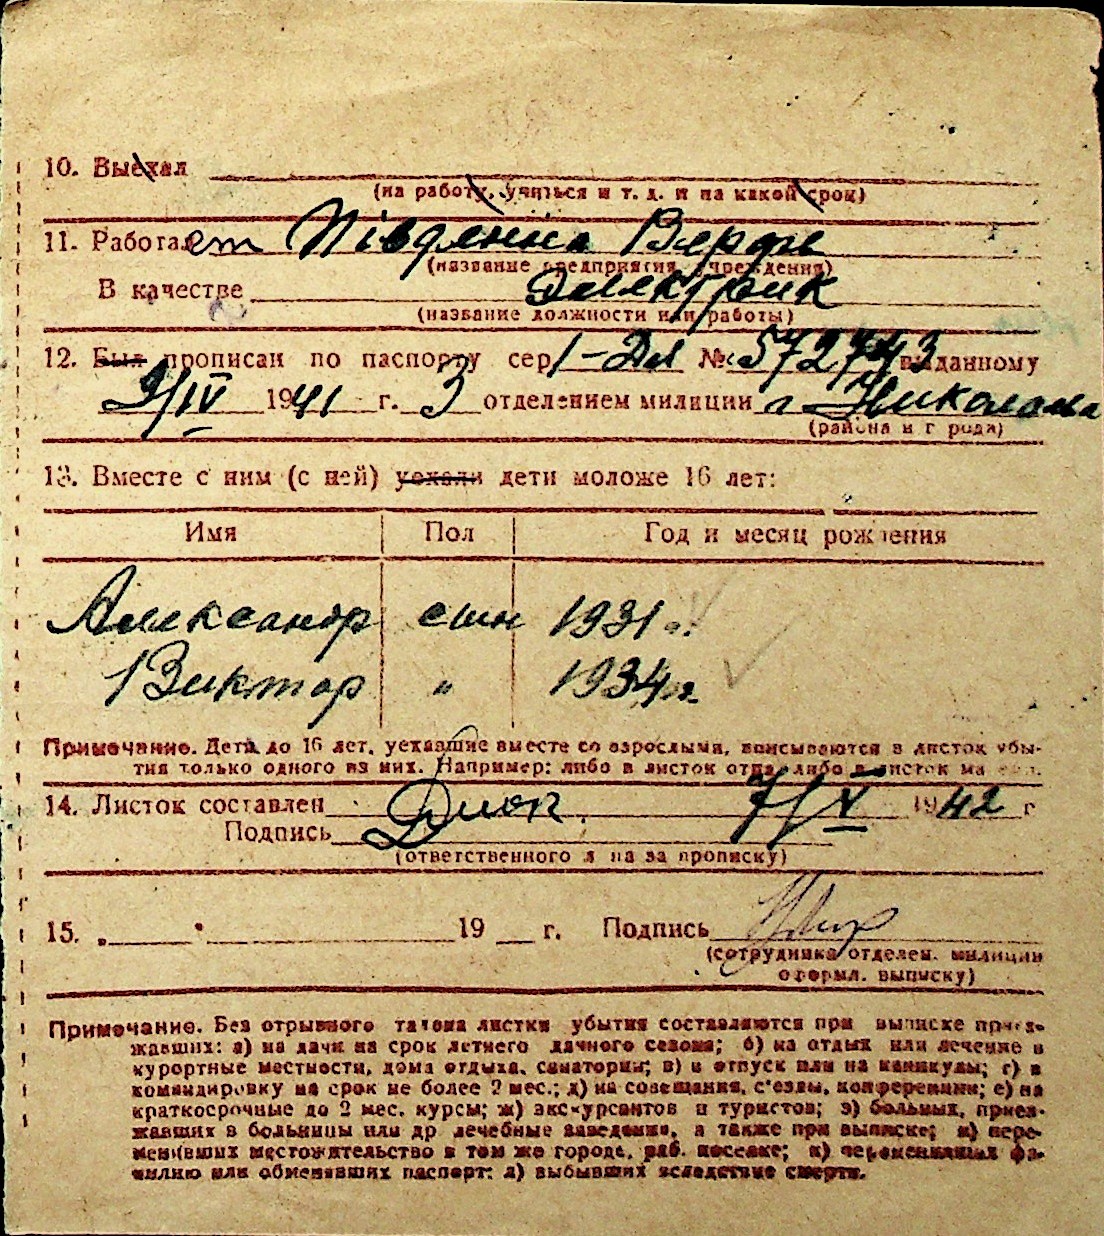 10. Выехал
(на работу, учиться и т. д. и на какой срок)
11. Работает Південна Верфь
(название предприятия, учреждения)
В качестве Электрик
(название должности или работы)
12. Был прописан по паспорту сер 1-Дл № 572743 выданному
9/IV 1941 г. 3 отделением милиции г Николаева
(района и города)
13. Вместе с ним (с ней) уехали дети моложе 16 лет:
Имя Пол Год и месяц рождения
Александр сын 1931 г.
Виктор " 1934 г.
Примечание. Дети до 16 лет, уехавшие вместе со взрослыми, вписываются в листок убы-
тия только одного из них. Например: либо в листок отца, либо в листок матери.
14. Листок составлен 7/V 1942 г
Подпись
(ответственного лица за прописку)
15. „ " 19 г. Подпись
(сотрудника отделен. милиции
оформл. выписку)
Примечание. Без отрывного талона листки убытия составляются при выписке приез-
жавших: а) на дачи на срок летнего дачного сезона; б) на отдых или лечение в
курортные местности, дома отдыха, санатории; в) в отпуск или на каникулы; г) в
командировку на срок не более 2 мес.; д) на совещания, с'езды, конференции; е) на
краткосрочные до 2 мес. курсы; ж) экскурсантов и туристов; з) больных, приез-
жавших в больницы или др лечебные заведения, а также при выписке; и) пере-
менивших местожительство в том же городе, раб. поселке; к) переменивших фа-
милию или обменявших паспорт; л) выбывших вследствие смерти.